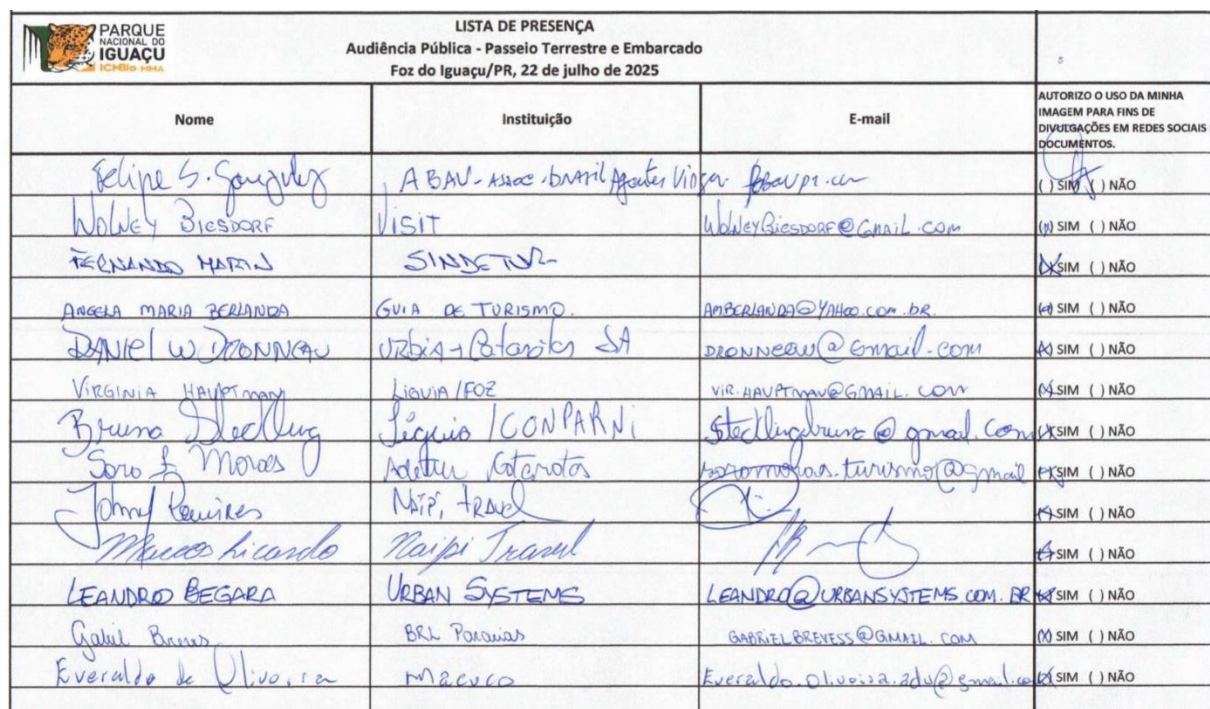 PARQUE NACIONAL DO IGUAÇU ICMBio MMA
LISTA DE PRESENÇA
Audiência Pública - Passeio Terrestre e Embarcado
Foz do Iguaçu/PR, 22 de julho de 2025
Nome Instituição E-mail AUTORIZO O USO DA MINHA IMAGEM PARA FINS DE DIVULGAÇÕES EM REDES SOCIAIS DOCUMENTOS.
Felipe S. ABAV - ASSOC. BRASIL Agentes ( ) SIM ( ) NÃO
WOLNEY BIESDORF VISIT WOLNEYBIESDORF@GMAIL.COM (x) SIM ( ) NÃO
FERNANDO MARTIN SINDETUR (X) SIM ( ) NÃO
ANGELA MARIA BERLANDA GUIA DE TURISMO. AMBERLANDA@YAHOO.COM.BR. (x) SIM ( ) NÃO
DANIEL W DRONNEAU URBIA + Cataratas SA DRONNEAU@Gmail.com (x) SIM ( ) NÃO
VIRGINIA HAUPTMAN LIGUIA/FOZ VIR.HAUPTMAN@GMAIL.COM (X) SIM ( ) NÃO
Bruna Stedling /CONPARNI stedlingbruna@gmail.com (X) SIM ( ) NÃO
Moraes Cataratas (X) SIM ( ) NÃO
Johny Ramires NAIPI, TRAVEL (X) SIM ( ) NÃO
Marcos Ricardo Naipi Travel (X) SIM ( ) NÃO
LEANDRO BEGARA URBAN SYSTEMS LEANDRO@URBANSYSTEMS.COM.BR (X) SIM ( ) NÃO
Gabriel Breves BRL Parcerias GABRIELBREVESS@GMAIL.COM (X) SIM ( ) NÃO
Everaldo de Oliveira Macuco Everaldo.oliveira.adv@gmail.com (X) SIM ( ) NÃO